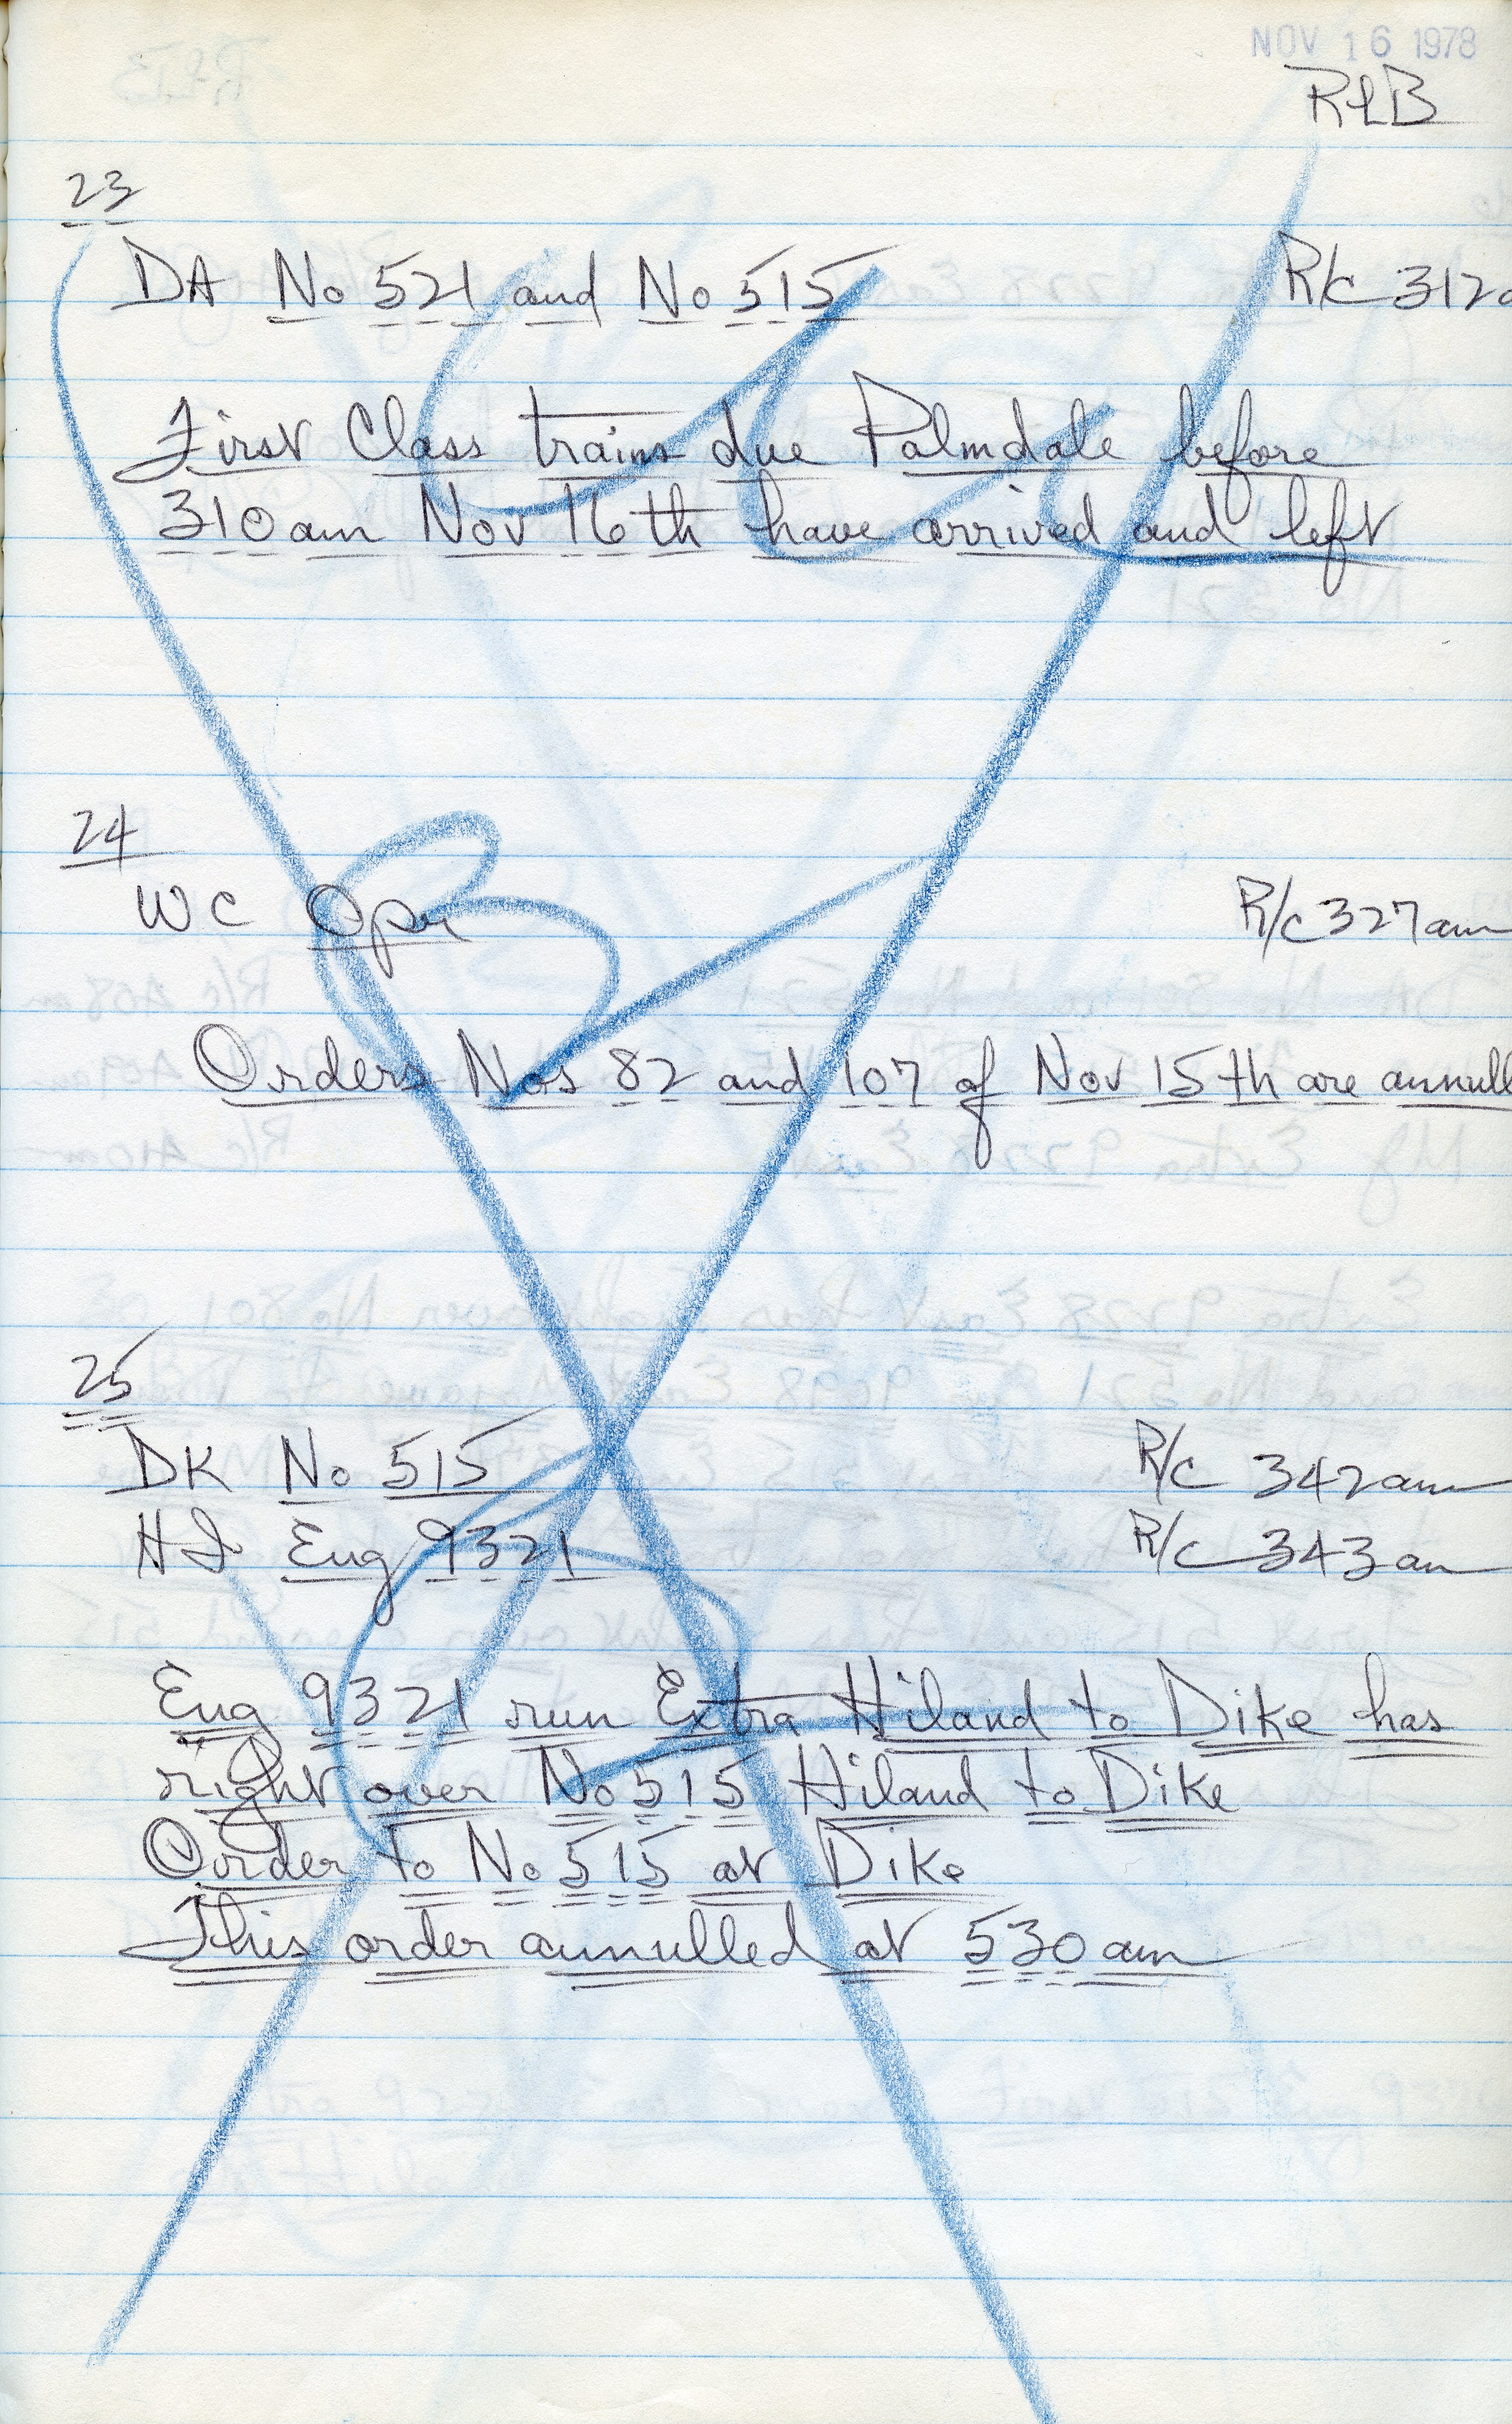 NOV 16 1978
RLB
23
DA No 521 and No 515 R/c 312a
First Class trains due Palmdale before
310am Nov 16th have arrived and left
24
WC Opr R/c 327am
Orders Nos 82 and 107 of Nov 15th are annull
25
DK No 515 R/c 342am
HI Eng 9321 R/c 343am
Eng 9321 run Extra Hiland to Dike has
right over No 515 Hiland to Dike
Order to No 515 at Dike
This order annulled at 530am